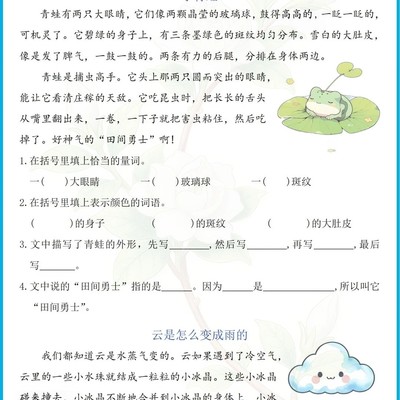 青蛙有两只大眼睛，它们像两颗晶莹的玻璃球，鼓得高高的，一眨一眨的，
可机灵了。它碧绿的身子上，有三条墨绿色的斑纹均匀分布。雪白的大肚皮，
像是发了脾气，一鼓一鼓的。两条有力的后腿，分排在身体两边。
青蛙是捕虫高手。它头上那两只圆而突出的眼睛，
能让它看清庄稼的天敌。它吃昆虫时，把长长的舌头
从嘴里翻出来，一卷，一下子就把害虫粘住，然后吃
掉了。好神气的“田间勇士”啊！
1.在括号里填上恰当的量词。
一(　　)大眼睛　　一(　　)玻璃球　　一(　　)斑纹
2.在括号里填上表示颜色的词语。
(　　　)的身子　　(　　　)的斑纹　　(　　　)的大肚皮
3.文中描写了青蛙的外形，先写______,然后写______,再写______,最后
写______。
4.文中说的“田间勇士”指的是______。因为______是____________,所以叫它
“田间勇士”。
云是怎么变成雨的
我们都知道云是水蒸气变的。云如果遇到了冷空气，
云里的一些小水珠就结成一粒粒的小冰晶。这些小冰晶
碰来撞去，小冰晶不断地合并到小冰晶的身体上，小冰